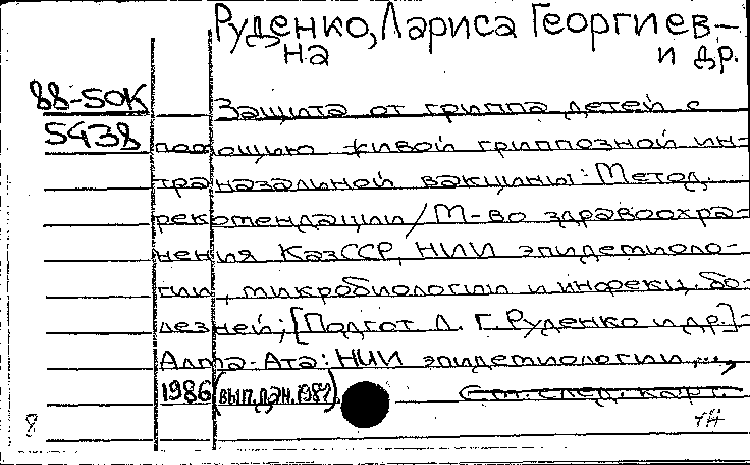 Руденко, Лариса Георгиев-
на и др.
88-50К
5438
Защита от гриппа детей с
помощью живой гриппозной ин-
траназальной вакцины: Метод.
рекомендации / М-во здравоохра-
нения КазССР, НИИ эпидемиоло-
гии, микробиологии и инфекц. бо-
лезней; [Подгот. Л. Г. Руденко и др.]-
Алма-Ата: НИИ эпидемиологии...,
1986 (вып. дан. 1987).
См. след. карт.
8